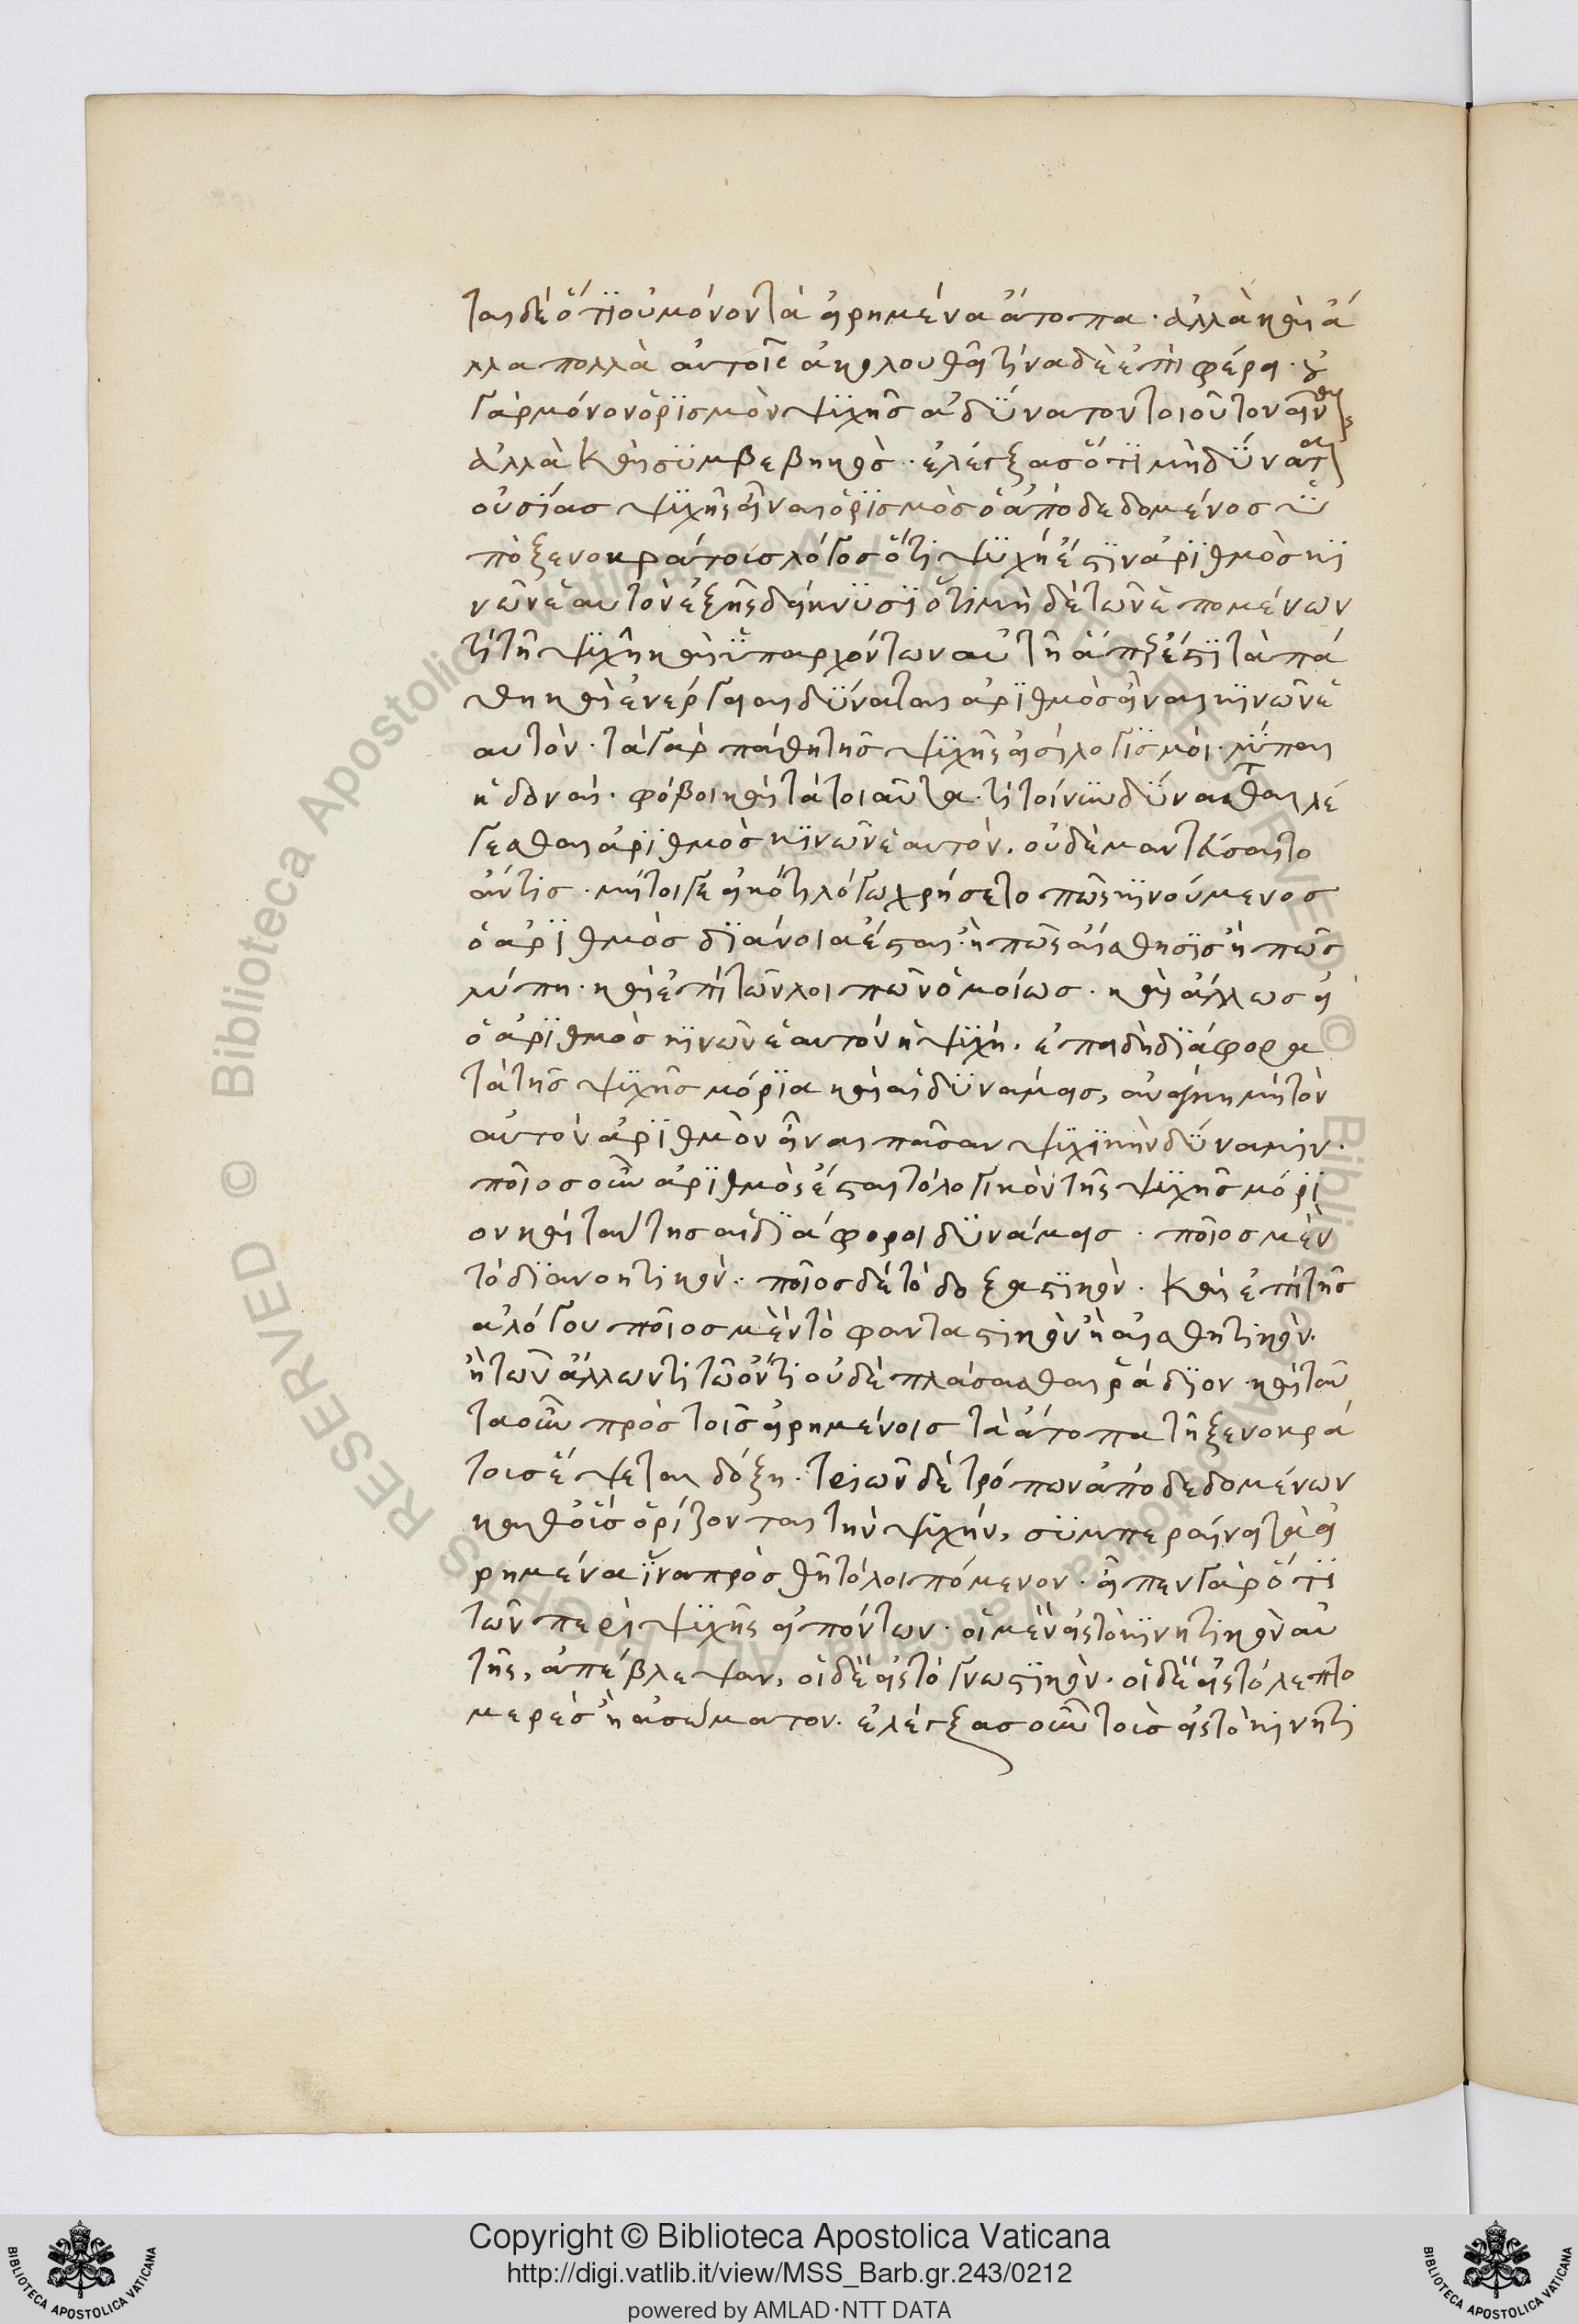 ται δὲ ὅτι οὐ μόνον τὰ εἰρημένα ἄτοπα· ἀλλὰ καὶ ἄ
λλα πολλὰ αὐτοῖς ἀκολουθεῖ τίνα δὲ ἐπιφέρει· οὐ
γὰρ μόνον ὁρισμὸν ψυχῆς ἀδύνατον τοιοῦτον εἶν
ἀλλὰ καὶ συμβεβηκός· ἐλέγξας ὅτι μὴ δύνατ
οὐσίας ψυχῆς εἶναι ὁρισμὸς ὁ ἀποδεδομένος ὑ
πὸ ξενοκράτοις λόγος ὅτι ψυχή ἐστιν ἀριθμὸς κι
νῶν ἑαυτὸν ἑξῆς δείκνυσιν ὅτι μὴ δὲ τῶν ἑπομένων
τί τῆ ψυχῆ καὶ ὑπαρχόντων αὐτῆ ἅπερ ἐστὶ τὰ πά
θη καὶ ἐνέργειαι δύναται ἀριθμὸς εἶναι κινῶν ἑ
αυτόν· τὰ γὰρ πάθη τῆς ψυχῆς εἰσὶ λογισμοι· λύπαι
ἡδοναί· φόβοι καὶ τὰ τοιαῦτα· τί τοίνυν δύνασθαι λέ
γεσθαι ἀριθμὸς κινῶν ἑαυτόν, οὐδὲ μαντεύσαιτο
ἄν τις· μήτοιγε εἰκότι λόγω χρήσετο πῶς κινούμενος
ὁ ἀριθμὸς διάνοια ἔσται· ἢ πῶς αἴσθησις ἢ πῶς
λύπη· καὶ ἐπὶ τῶν λοιπῶν ὁμοίως· καὶ ἄλλως εἰ
ὁ ἀριθμὸς κινῶν ἑαυτόν ἡ ψυχή· ἐπειδὴ διάφορα
τὰ τῆς ψυχῆς μόρια καὶ αἱ δυνάμεις, ἀνάγκη μὴ τὸν
αὐτὸν ἀριθμὸν εἶναι πᾶσαν ψυχικὴν δύναμιν·
ποῖος οὖν ἀριθμὸς ἔσται τὸ λογικὸν τῆς ψυχῆς μόρι
ον καὶ ταύτης αἱ διάφοροι δυνάμεις· ποῖος μὲν
τὸ διανοητικόν· ποῖος δὲ τὸ δοξαστικόν· καὶ ἐπὶ τῆς
ἀλόγου ποῖος μὲν τὸ φανταστικὸν ἢ αἰσθητικόν·
ἢ τῶν ἄλλων τί τῶ ὄντι οὐδὲ πλάσασθαι ῥάδιον· καὶ ταῦ
τα οὖν πρὸς τοῖς εἰρημένοις τὰ ἄτοπα τῆ ξενοκρά
τοις ἕψεται δόξη· τριῶν δὲ τρόπων ἀποδεδομένων
καθ' οἷς ὁρίζονται τὴν ψυχήν, συμπεραίνει τὰ εἰ
ρημένα ἵνα προσθῆ τὸ λοιπόμενον· εἶπεν γὰρ ὅτι
τῶν περὶ ψυχῆς εἰπόντων· οἱ μὲν εἰς τὸ κινητικὸν αὐ
τῆς, ἀπέβλεψαν, οἱ δὲ εἰς τὸ γνωστικόν· οἱ δὲ εἰς τὸ λεπτο
μερὲς ἢ ἀσώματον· ἐλέγξας οὖν τοὺς εἰς τὸ κινητι
Copyright © Biblioteca Apostolica Vaticana
http://digi.vatlib.it/view/MSS_Barb.gr.243/0212
powered by AMLAD·NTT DATA